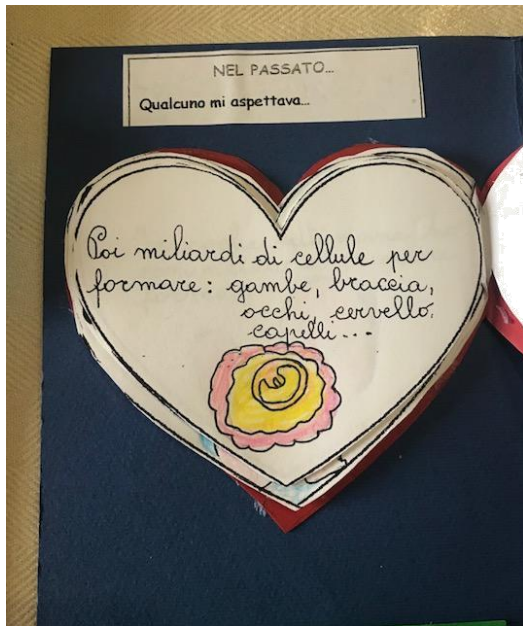 NEL PASSATO...
Qualcuno mi aspettava...
Poi miliardi di cellule per
formare: gambe, braccia,
occhi, cervello,
capelli...